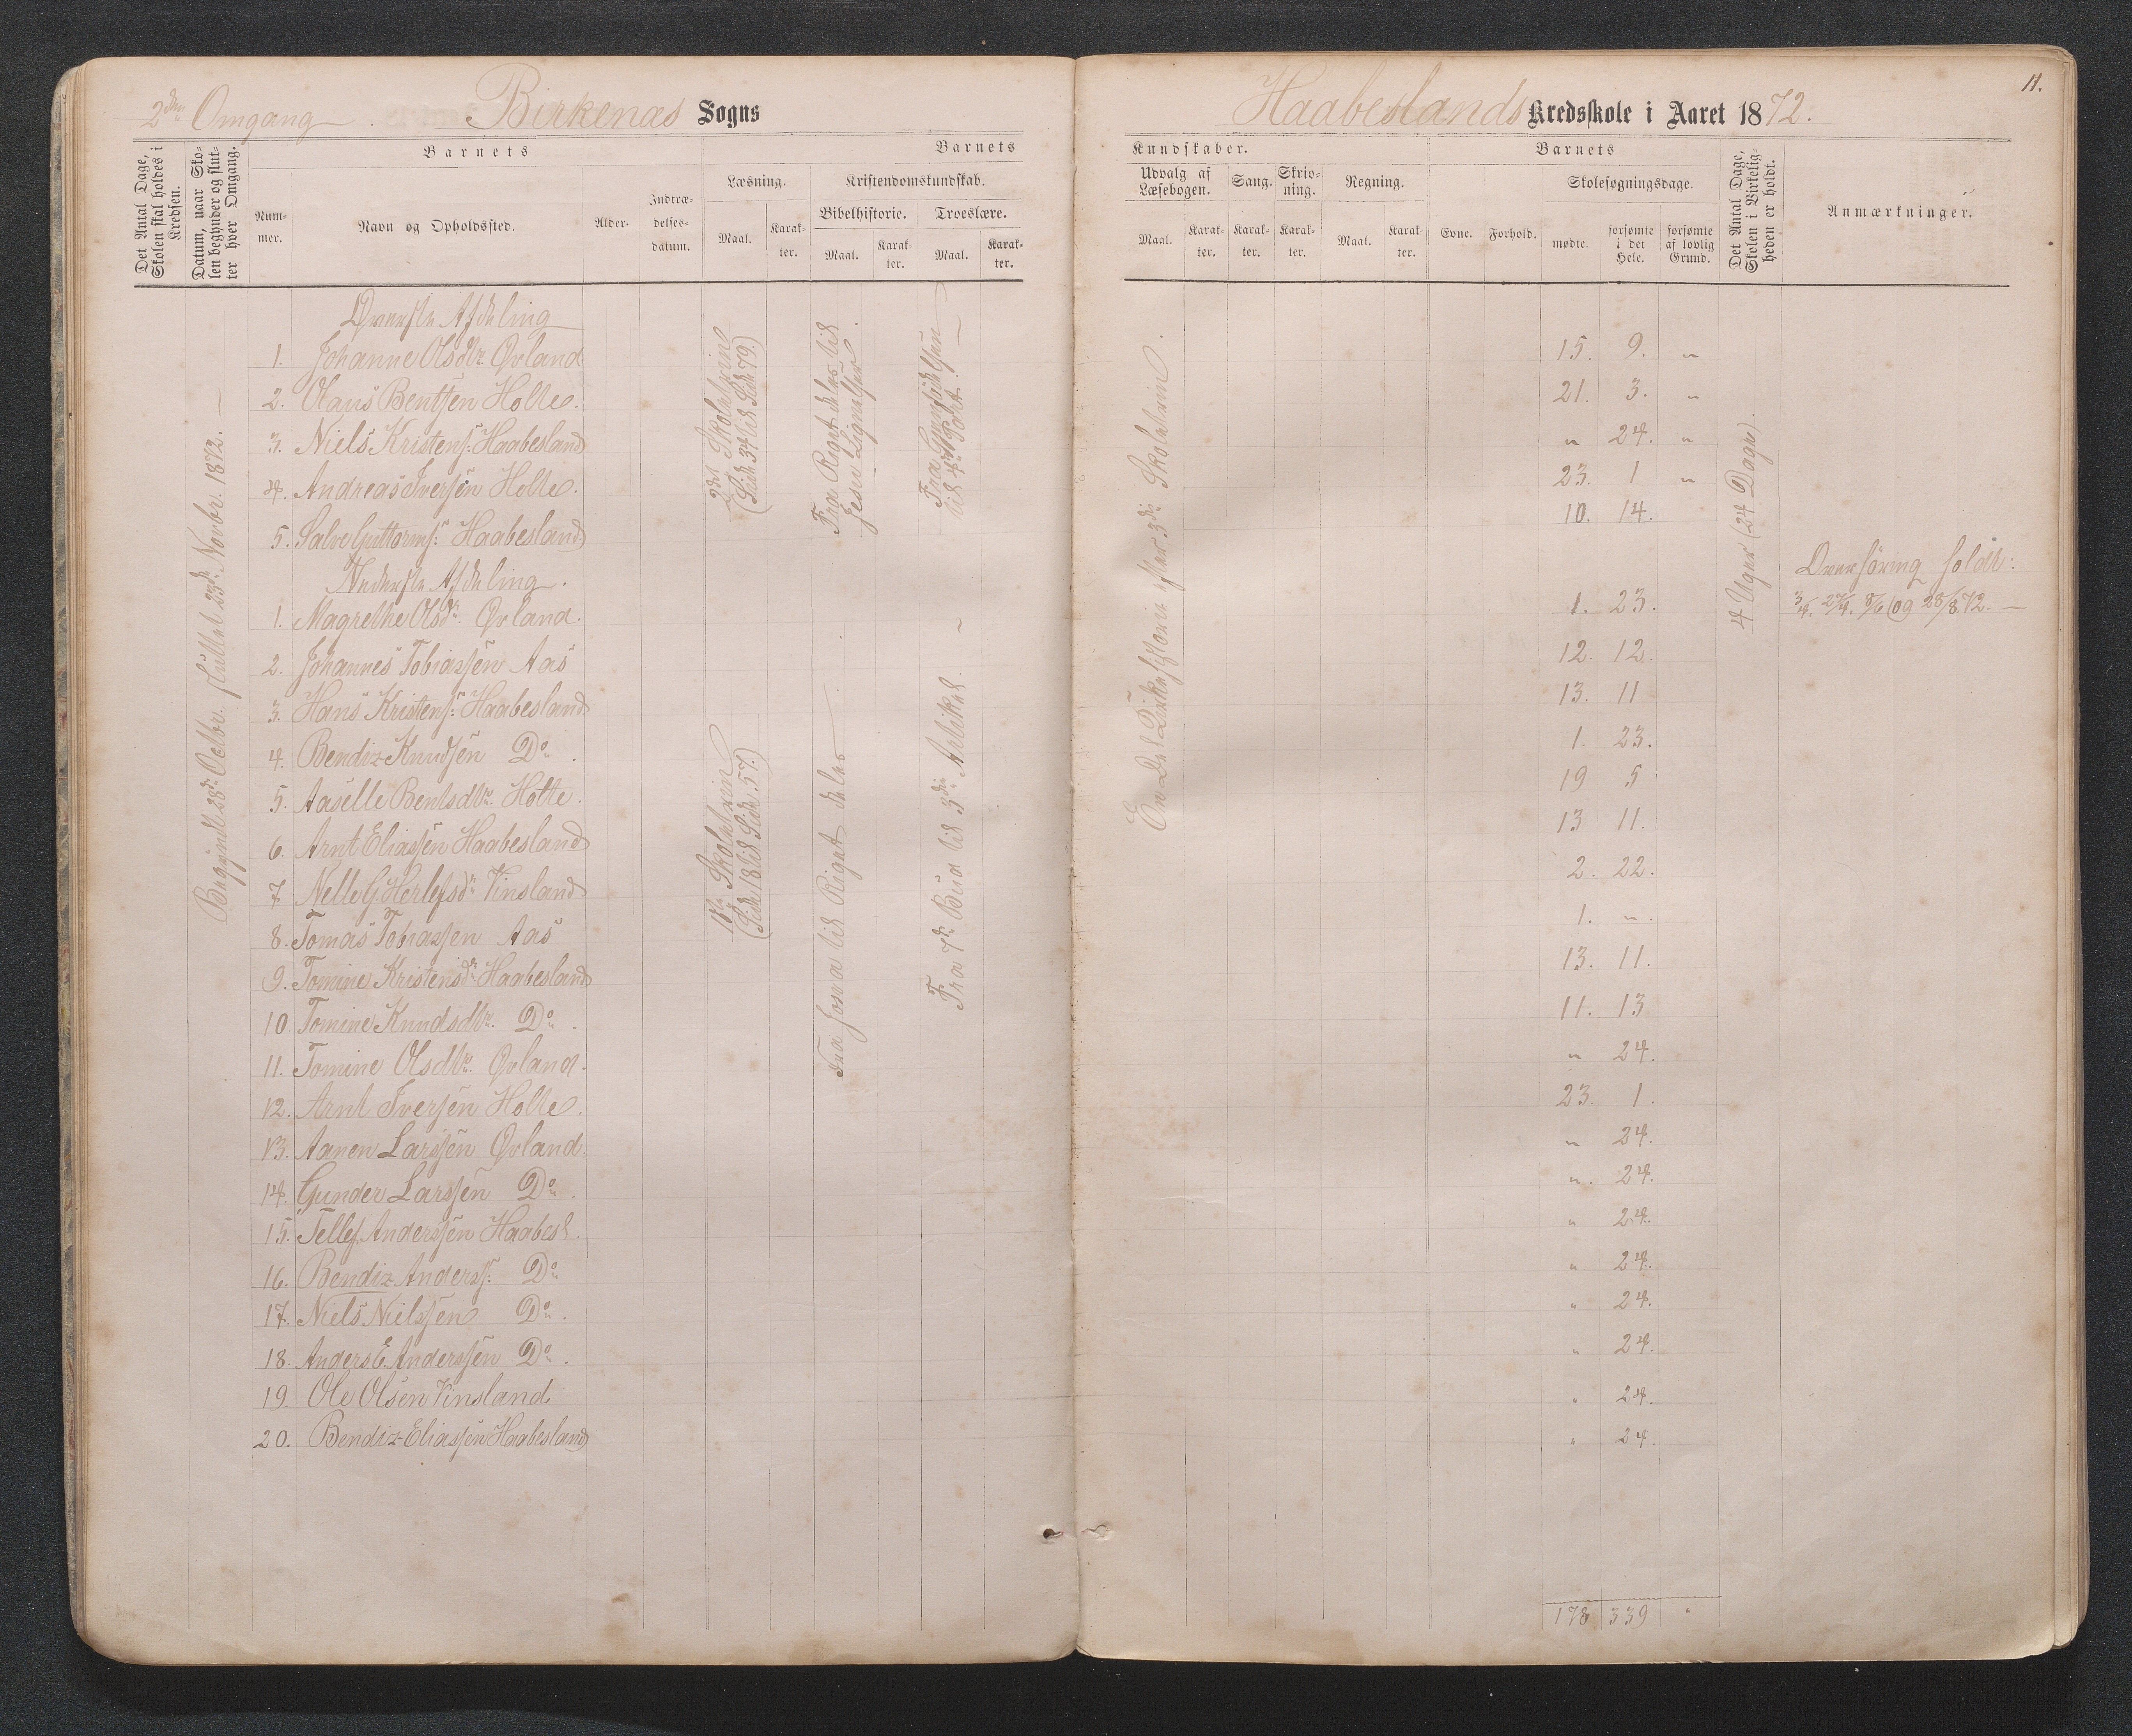 2den Omgang Birkenæs Sogns
Det Antal Dage, Skolen skal holdes i Kredsen.
Datum, naar Skolen begynder og slutter hver Omgang.
Barnets
Barnets
Nummer.
Navn og Opholdssted.
Alder.
Indtrædelsesdatum.
Læsning.
Kristendomskundskab.
Bibelhistorie. Troeslære.
Maal. Karakter. Maal. Karakter. Maal. Karakter.
Begyndt 28de Octbr. sluttet 23de Novbr. 1872. —
Øverste Afdeling
1. Johanne Olsdtr. Øvland
2. Olaus Bentsen Holte.
3. Niels Kristens: Haabesland
4. Andreas Iversen Holte.
5. Salve Guttorms: Haabesland
Nederste Afdeling.
1. Magrethe Olsdr. Øvland.
2. Johannes Tobiassen Aas
3. Hans Kristens: Haabesland
4. Bendix Knudsen Do.
5. Aaselle Bentsdtr. Holte.
6. Arnt Eliassen Haabesland
7 Nelle G. Herlefsdr Vinsland
8. Tomas Tobiassen Aas
9. Tomine Kristensdr Haabesland
10 Tomine Knudsdtr. Do.
11. Tomine Olsdtr. Øvland.
12. Arnt Iversen Holte.
13. Aanen Larssen Øvland.
14. Gunder Larssen Do.
15. Tellef Anderssen Haabesl.
16. Bendix Anderss: Do
17. Niels Nielssen Do.
18. Anders E. Anderssen Do.
19. Ole Olsen Vinsland.
20. Bendix Eliassen Haabesland
2den Skoletrin
(Side 34 til Side 79.)
Fra Riget deles til
Jesu Lignelser
Fra Gjenfødelsen
til 4de Part. —
1ste Skoletrin
(Side 18 til Side 57.)
Fra Josva til Riget deles —
Fra 7de Bud til 3die Artikel. —
11.
Haabeslands Kredsskole i Aaret 1872.
Kundskaber.
Barnets
Udvalg af Læsebogen.
Sang. Skrivning. Regning.
Skolesøgningsdage.
Maal. Karakter. Karakter. Karakter. Maal. Karakter.
Evne. Forhold.
mødte. forsømte i det Hele. forsømte af lovlig Grund.
Det Antal Dage, Skolen i Virkeligheden er holdt.
Anmærkninger.
En Del Kirkehistorie efter 3die Skoletrin.
4 Uger (24 Dage).
15. 9. "
21. 3. "
" 24. "
23. 1 "
10. 14.
1. 23.
12. 12.
13. 11
1. 23.
19 5
13 11.
2. 22.
1. ".
13. 11.
11. 13
" 24.
23. 1.
" 24.
". 24.
" 24.
" 24.
" 24.
" 24.
" 24.
" 24.
178 339 "
Overhøring holdt:
3/4. 27/4. 8/6 og 28/8. 72. —